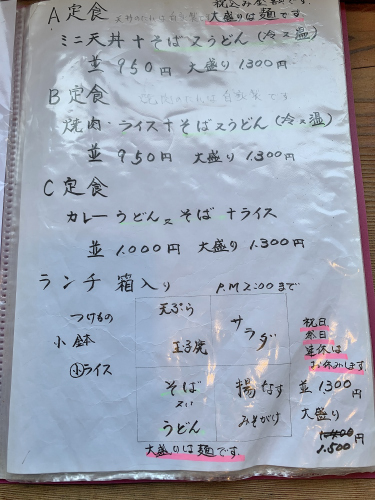 税込み金額です。
A定食 天丼のたれは自家製
大盛りは麺です。
ミニ天丼+そば又うどん(冷又温)
並 950円 大盛り 1.300円
B定食 焼肉のたれは自家製です
焼肉・ライス+そば又うどん(冷又温)
並 950円 大盛り 1.300円
C定食
カレーうどん又そば+ライス
並 1.000円 大盛り 1.300円
ランチ箱入り P.M2:00まで
つけもの
小鉢
小ライス
天ぷら
玉子焼
サラダ
そば
又は
うどん
揚なす
みそがけ
大盛りは麺です。
祝日
祭日
連休は
お休みします。
並 1.300
大盛り
1.500円